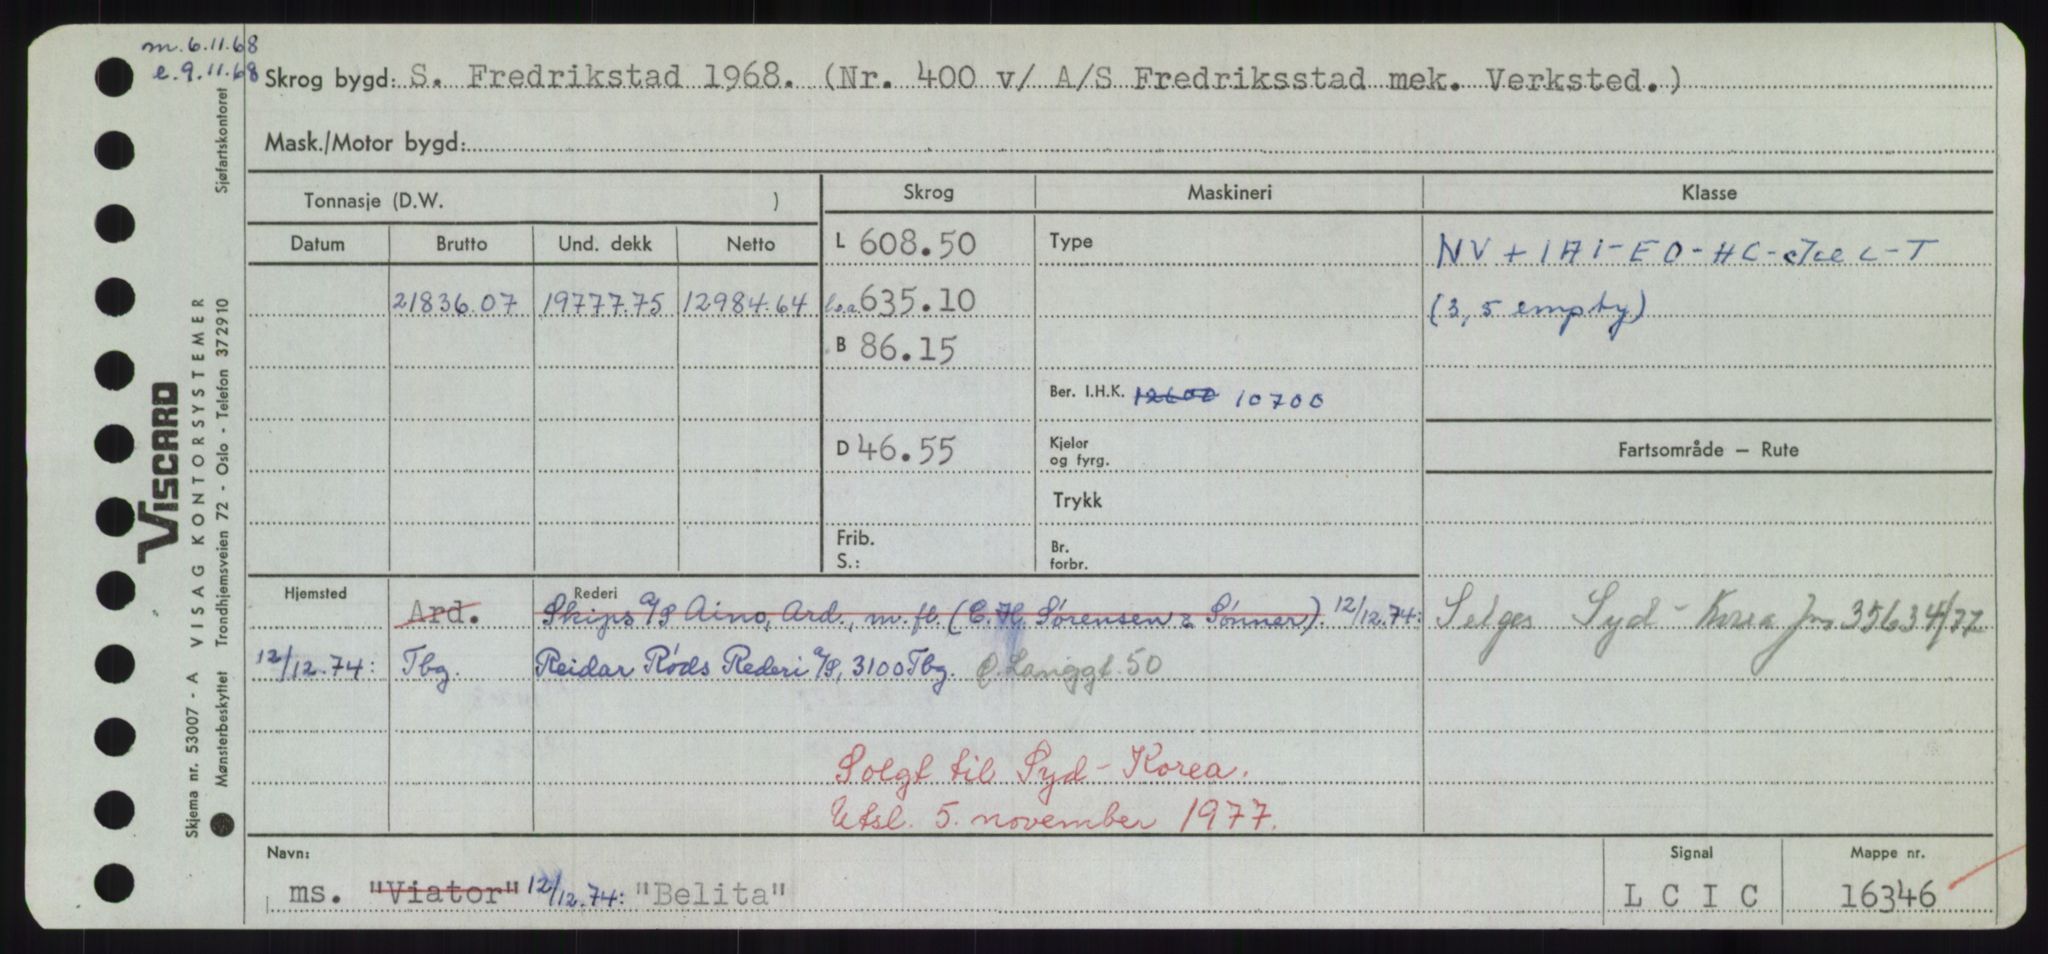 m. 6.11.68
e. 9.11.68
Skrog bygd: S. Fredrikstad 1968. (Nr. 400 v/ A/S Fredriksstad mek. Verksted.)
Mask./Motor bygd:
Tonnasje (D.W. )
Skrog
Maskineri
Klasse
Datum
Brutto
Und. dekk
Netto
L 608.50
Type
NV + 1A1 - EO - HC - - T
21836.07
19777.75
12984.64
l.o.a. 635.10
(3, 5 empty)
B 86.15
Ber. I.H.K. 12600 10700
D 46.55
Kjelor
og fyrg.
Fartsområde — Rute
Trykk
Frib.
S.:
Br.
forbr.
Hjemsted
Rederi
Ard. Skips A/S Aino, Ard., m.fl. (C. H. Sørensen & Sønner). 12/12.74:
Selges Syd-Korea Jnr 35634/77
12/12.74: Tbg. Reidar Røds Rederi A/S, 3100 Tbg. Ø. Langgt. 50
Solgt til Syd-Korea.
Utsl. 5. november 1977.
Navn:
Signal
Mappe nr.
ms. "Viator" 12/12.74: "Belita"
L C I C
16346
Sjøfartskontoret
VISCARD
Skjema nr. 53007 - A VISAG KONTORSYSTEMER
Mønsterbeskyttet Trondhjemsveien 72 - Oslo - Telefon 372910